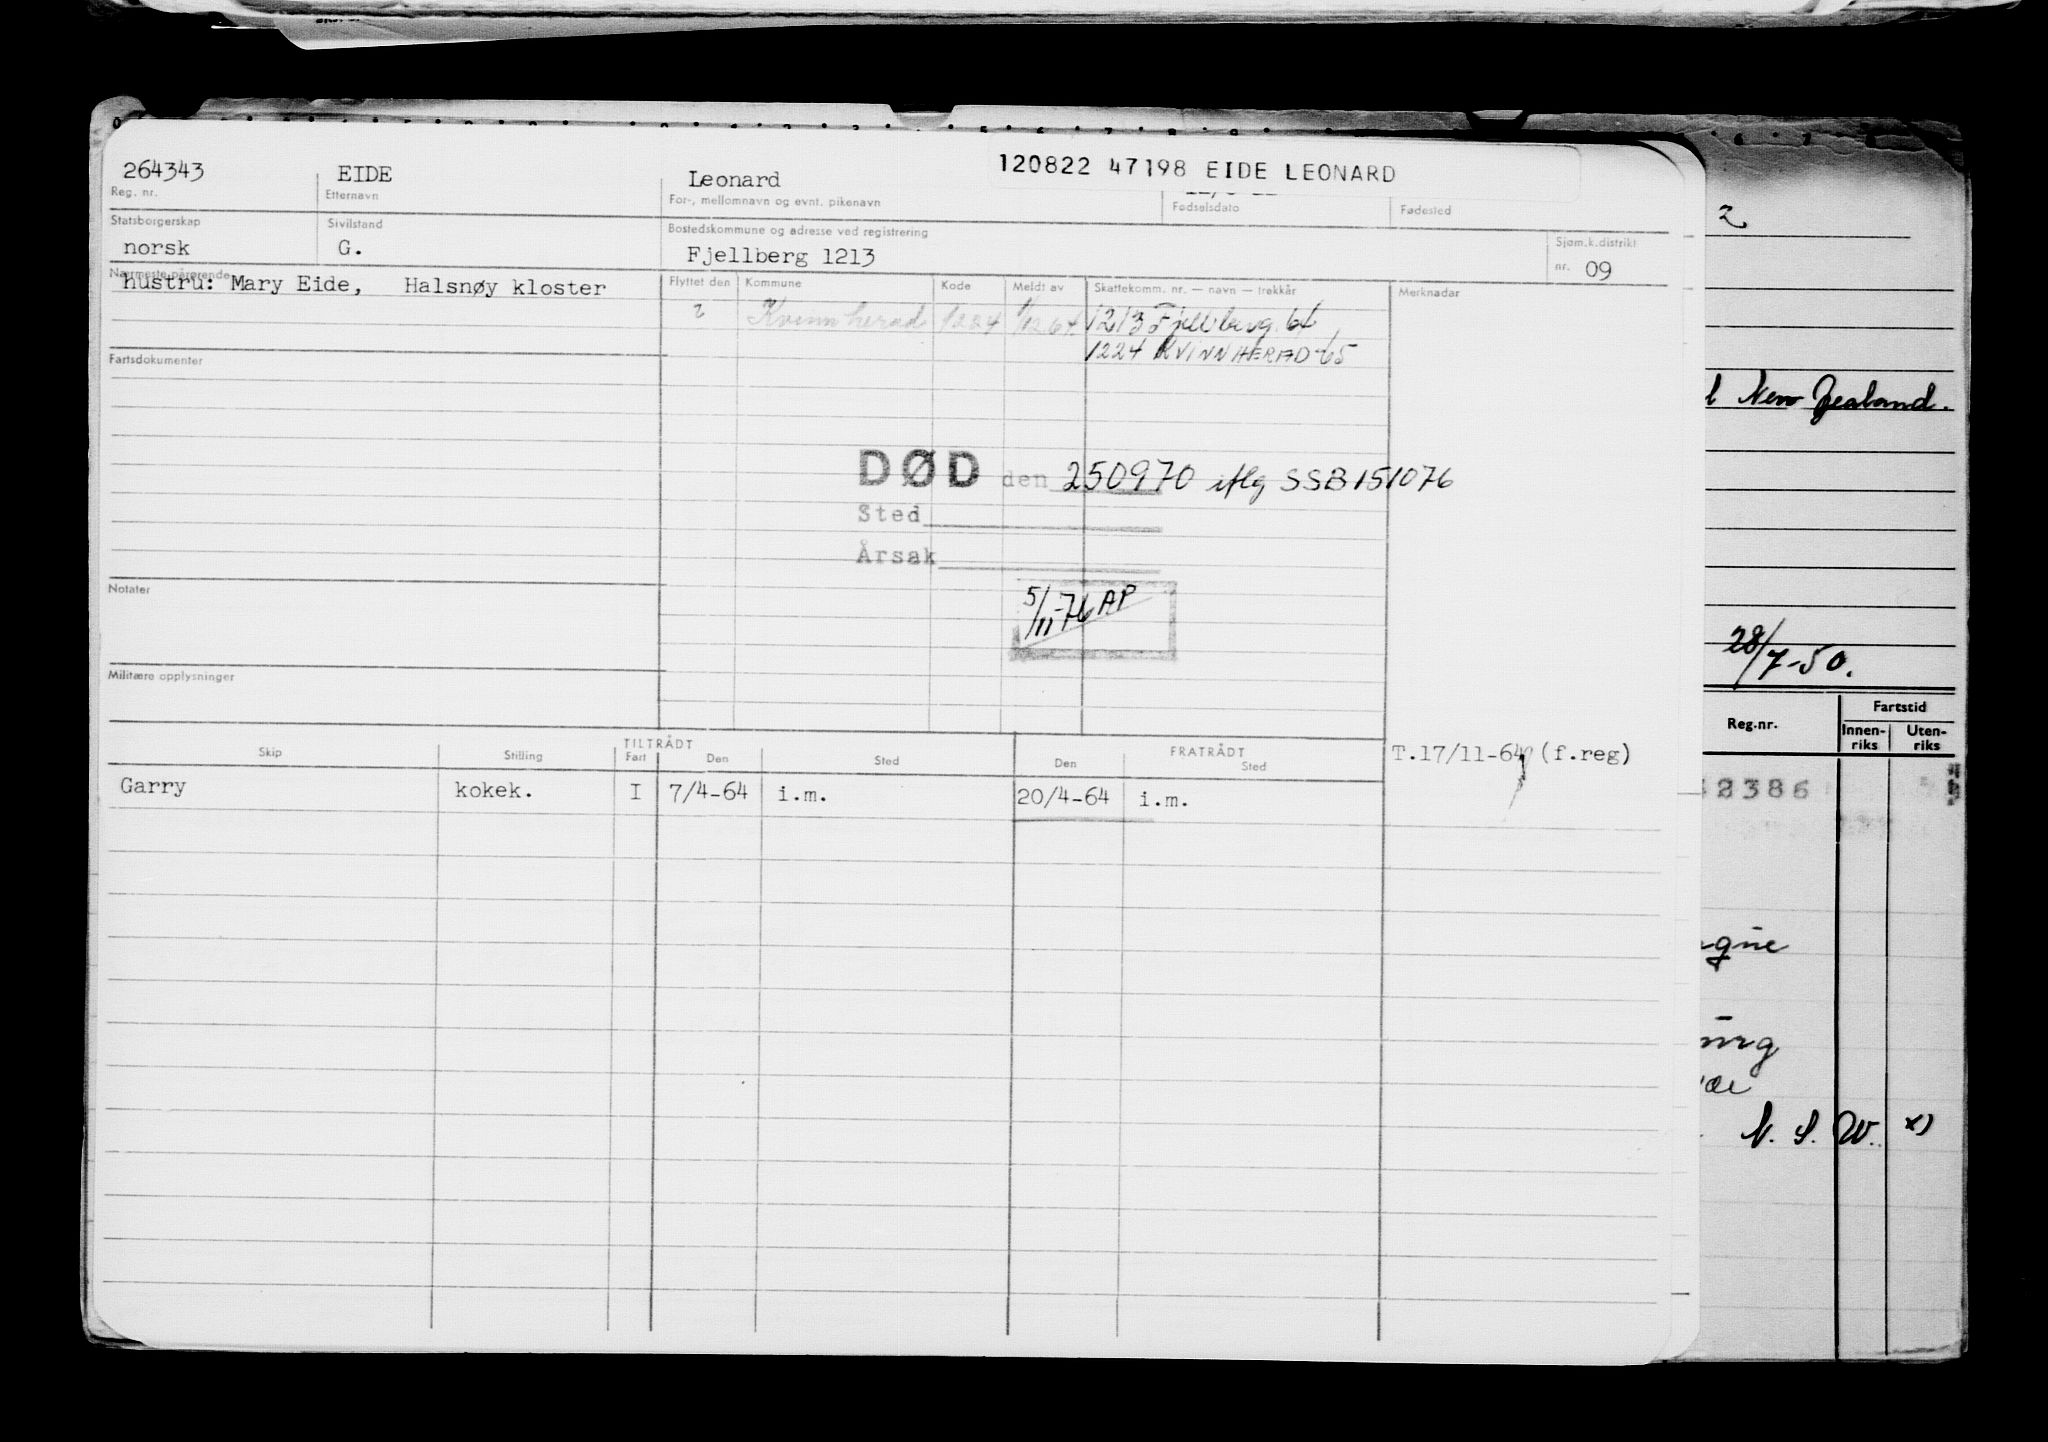 120822 47198 EIDE LEONARD
264343 EIDE Leonard
Reg. nr. Etternavn For-, mellomnavn og evnt. pikenavn Fødselsdato Fødested
Statsborgerskap Sivilstand Bostedskommune og adresse ved registrering Sjøm.k.distrikt
norsk G. Fjellberg 1213 nr. 09
Nærmeste pårørende
hustru: Mary Eide, Halsnøy kloster
Flyttet den Kommune Kode Meldt av Skattekomm. nr. — navn — trekkår Merknader
? Kvinnherad 1224 1/12 64 1213 Fjellberg 64,
1224 KVINNHERAD-65
Fartsdokumenter
DØD den 250970 iflg SSB 151076
Sted
Årsak
5/11-76 AP
Notater
Militære opplysninger
Skip Stilling TILTRÅDT FRATRÅDT
Fart Den Sted Den Sted
T.17/11-64 (f.reg)
Garry kokek. I 7/4-64 i.m. 20/4-64 i.m.
2
New Zealand.
28/7-50.
Reg.nr. Fartstid
Innen-riks Uten-riks
2386
N. S. W. x)